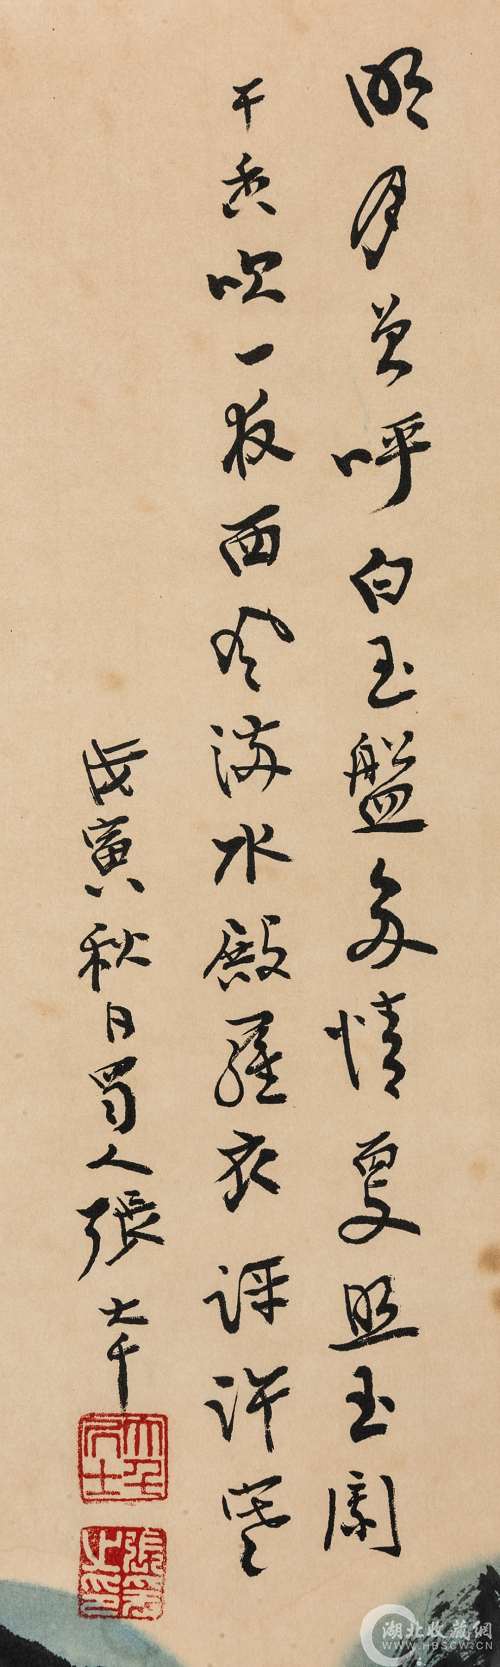 明月曾呼白玉盤多情更照玉闌
干香吹一夜西風滿水殿羅衣評許寒
戊寅秋日蜀人張大千
大千居士
張爰之印
湖北收藏網
WWW.HBSCW.CN